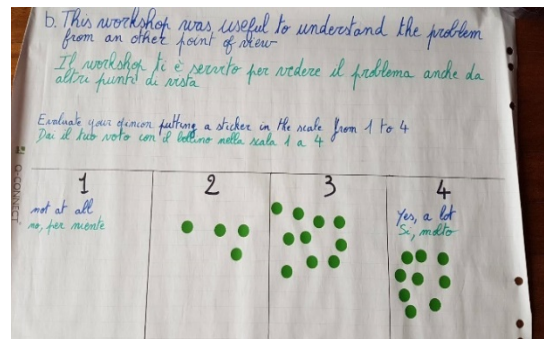 b. This workshop was useful to understand the problem
from an other point of view
Il workshop ti è servito per vedere il problema anche da
altri punti di vista
Evaluate your opinion putting a sticker in the scale from 1 to 4
Dai il tuo voto con il bollino nella scala 1 a 4
G-CONNECT
1 2 3 4
not at all
no, per niente
Yes, a lot
Si, molto